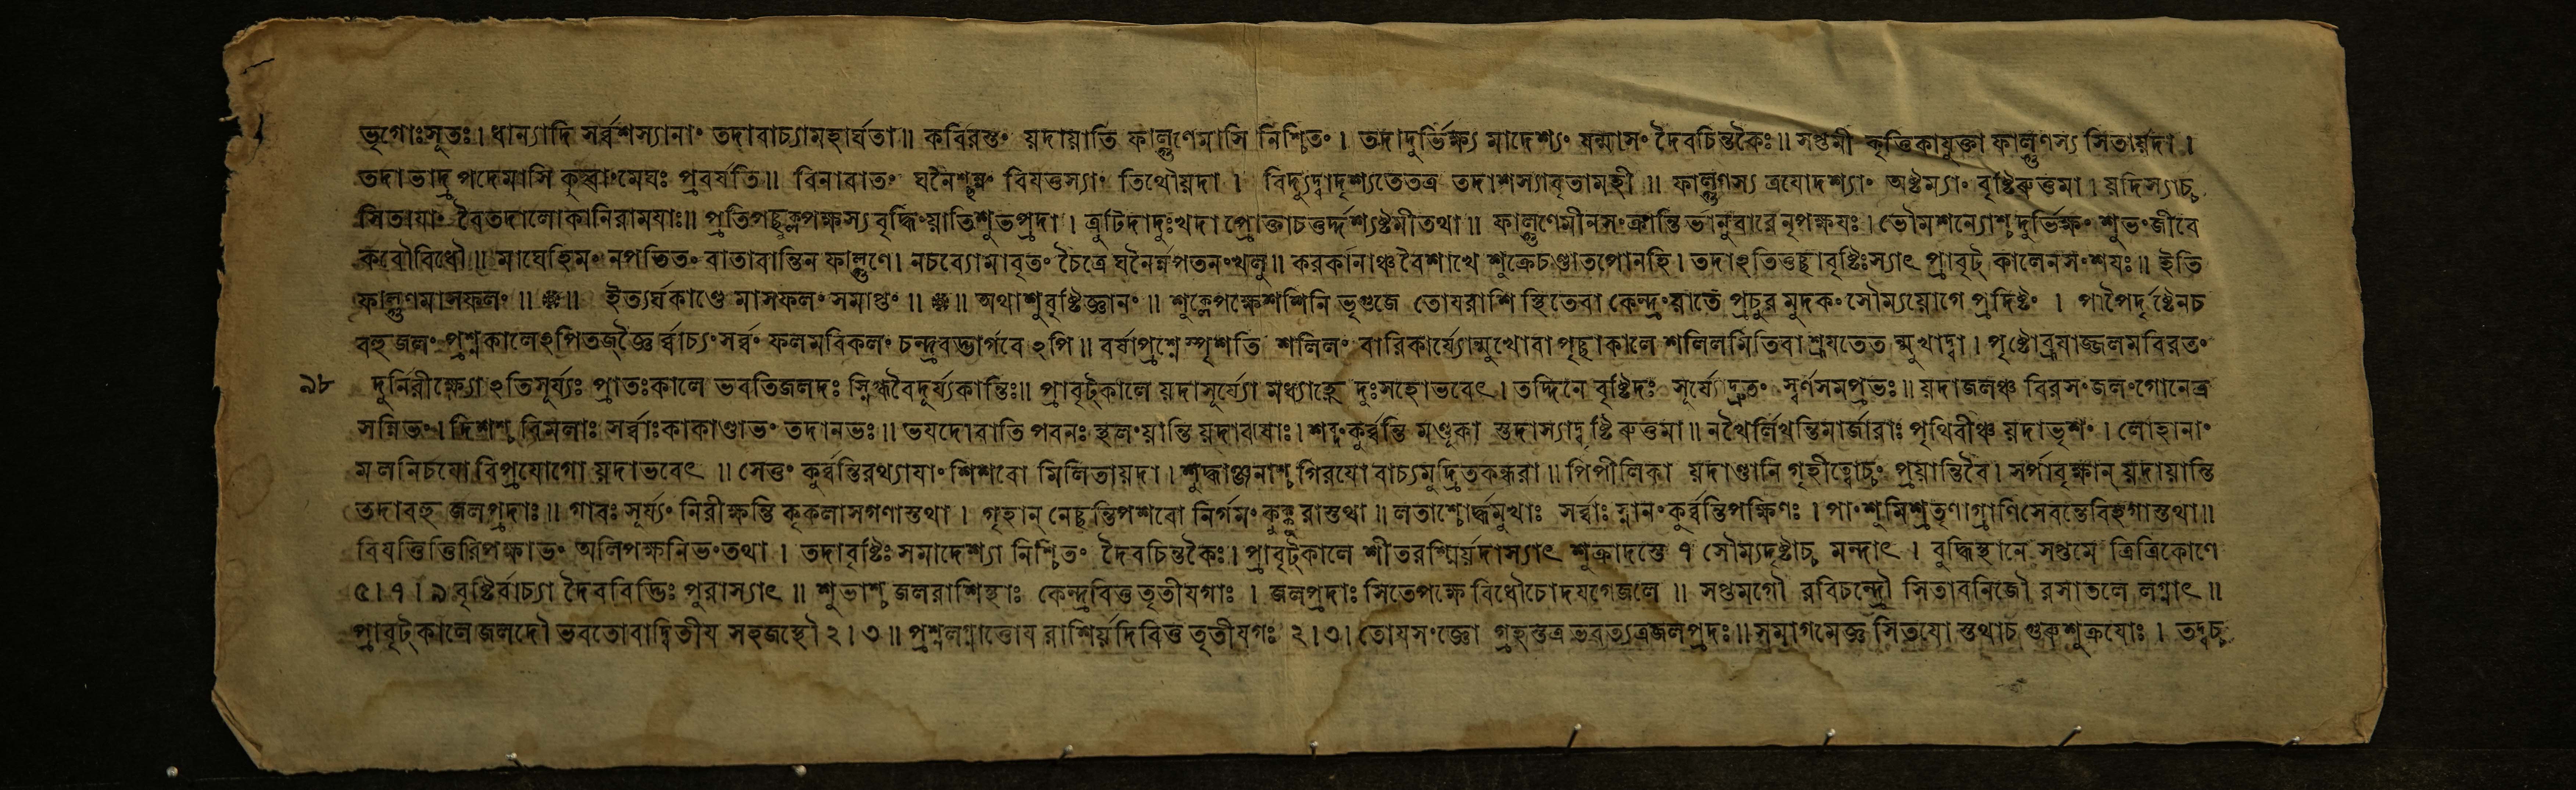 ভৃগোঃসুতঃ। ধান্যাদি সর্ব্বশস্যানা॰ তদাবাচ্যামহার্ঘতা॥ কবিরস্ত॰ য়দায়াতি ফাল্গুণেমাসি নিশ্চিত॰ । তদাদুর্ভিক্ষ্য মাদেশ্য॰ ষন্মাস॰ দৈবচিন্তকৈঃ॥ সপ্তমী কৃত্তিকাযুক্তা ফাল্গুণস্য সিতায়দা ।
তদাভাদ্রপদেমাসি মেঘঃ প্রবর্ষতি॥ বিনাবাত॰ ঘনৈশ্ছন্ন॰ বিযত্তস্যা॰ তিথৌয়দা । বিদ্যুদ্বাদৃশ্যতেতত্র তদাশস্যাবৃতামহী ॥ ফাল্গুণস্য ত্রযোদশ্যা॰ অষ্টম্যা॰ বৃষ্টিরুত্তমা । য়দিস্যাচ্চ
সিতাযা॰ বৈতদালোকানিরামযাঃ॥ প্রতিপচ্ছুক্লপক্ষস্য বৃদ্ধি॰য়াতিশুভপ্রদা । ত্রুটিদাদুঃখদা প্রোক্তাচতুর্দ্দশ্যষ্টমীতথা॥ ফাল্গুণেমীনস॰ক্রান্তি র্ভানুবারেনৃপক্ষযঃ। ভৌমশন্যোশ্চ দুর্ভিক্ষ॰ শুভ॰জীবে
কবৌবিধৌ॥ মাঘেহিম॰ নপতিত॰ বাতাবান্তিন ফাল্গুণে। নচব্যোমাবৃত॰ চৈত্রে ঘনৈর্ন্নপতন॰খলু॥ করকানাঞ্চবৈশাখে শুক্রেচণ্ডাতপোনহি। তদাঽতিতুচ্ছাবৃষ্টিঃস্যাৎ প্রাবৃট্ কালেনস॰শযঃ॥ ইতি
ফাল্গুণমাসফল॰ ॥ ❈॥ ইত্যর্ঘকাণ্ডে মাসফল॰ সমাপ্ত॰ ॥ ❈॥ অথাশুবৃষ্টিজ্ঞান॰ ॥ শুক্লেপক্ষেশশিনি ভৃগুজে তোযরাশি স্থিতেবা কেন্দ্র॰যাতে প্রচুর মুদক॰ সৌম্যয়োগে প্রদিষ্ট॰ । পাপৈর্দৃষ্টেনচ
বহুজল॰ প্রশ্নকালেঽপিতজ্জ্ঞৈ র্ব্বাচ্য॰ সর্ব্ব॰ ফলমবিকল॰ চন্দ্রবদ্ভার্গবেঽপি॥ বর্ষাপ্রশ্নেস্পৃশতি শলিল॰ বারিকার্য্যোন্মুখোবা পৃচ্ছাকালে শলিলমিতিবা শ্রূযতেত ন্মুখাদ্বা। পৃষ্টোব্রূযাজ্জলমবিরত॰
৯৮ দুর্নিরীক্ষ্যোঽতিসূর্য্যঃ প্রাতঃকালে ভবতিজলদঃ স্নিগ্ধবৈদূর্য্যকান্তিঃ॥ প্রাবৃট্কালে য়দাসূর্য্যো মধ্যাহ্নে দুঃসহোভবেৎ। তদ্দিনে বৃষ্টিদঃ স্বর্ণসমপ্রভঃ॥ য়দাজলঞ্চ বিরস॰জল॰গোনেত্র
সন্নিভ॰। দিশশ্চ বিমলাঃ সর্ব্বাঃকাকাণ্ডাভ॰ তদানভঃ॥ পবনঃ স্থল॰য়ান্তি য়দাঝষাঃ। শব্দ॰কুর্ব্বন্তি মণ্ডূকা স্তদাস্যাদ্বৃষ্টি রুত্তমা॥ নখৈর্লিখন্তিমার্জারাঃ পৃথিবীঞ্চ য়দাভৃশ॰। লোহানা॰
মলনিচযো বিপ্রযোগো য়দাভবেৎ ॥ সেতু॰ কুর্ব্বন্তিরথ্যাযা॰ শিশবো মিলিতায়দা। গিরযো বাচ্যমুদ্রিতকন্ধরা॥ পিপীলিকা য়দাণ্ডানি প্রয়ান্তিবৈ। সর্পাবৃক্ষান্ য়দায়ান্তি
তদাবহু জলপ্রদাঃ॥ গাবঃ সূর্য্য॰ নিরীক্ষন্তি কৃকলাসগণাস্তথা । গৃহান্ নেচ্ছন্তিপশবো নির্গম॰ কুক্কুরাস্তথা॥ লতাশ্চোর্দ্ধমুখাঃ সর্ব্বাঃ স্নান॰কুর্ব্বন্তিপক্ষিণঃ । পা॰শুমিশ্রতৃণাগ্রাণিসেবন্তেবিহগাস্তথা॥
বিযত্তিত্তিরিপক্ষাভ॰ অলিপক্ষনিভ॰তথা । তদাবৃষ্টিঃ সমাদেশ্যা নিশ্চিত॰ দৈবচিন্তকৈঃ। প্রাবৃট্কালে শীতরশ্মির্য়দাস্যাৎ শুক্রাদস্তে ৭ সৌম্যদৃষ্টাচ্চ মন্দাৎ । বুদ্ধিস্থানে সপ্তমে ত্রিত্রিকোণে
৫।৭।৯ বৃষ্টির্বাচ্যা দৈববিদ্ভিঃ পুরাস্যাৎ ॥ শুভাশ্চ জলরাশিস্থাঃ কেন্দ্রবিত্ত তৃতীযগাঃ । জলপ্রদাঃ সিতেপক্ষে বিধৌচোদযগেজলে ॥ সপ্তমগৌ রবিচন্দ্রৌ সিতাবনিজৌ রসাতলে লগ্নাৎ॥
প্রাবৃট্কালেজলদৌ ভবতোবাদ্বিতীয সহজস্থৌ ২।৩॥ প্রশ্নলগ্নাত্তোয রাশির্য়দিবিত্ত তৃতীযগঃ ২।৩। তোযস॰জ্ঞো গ্রহস্তত্র ভবত্যত্রজলপ্রদঃ॥ সমাগমেজ্ঞ সিতযো স্তথাচ গুরুশুক্রযোঃ । তদ্বচ্চ